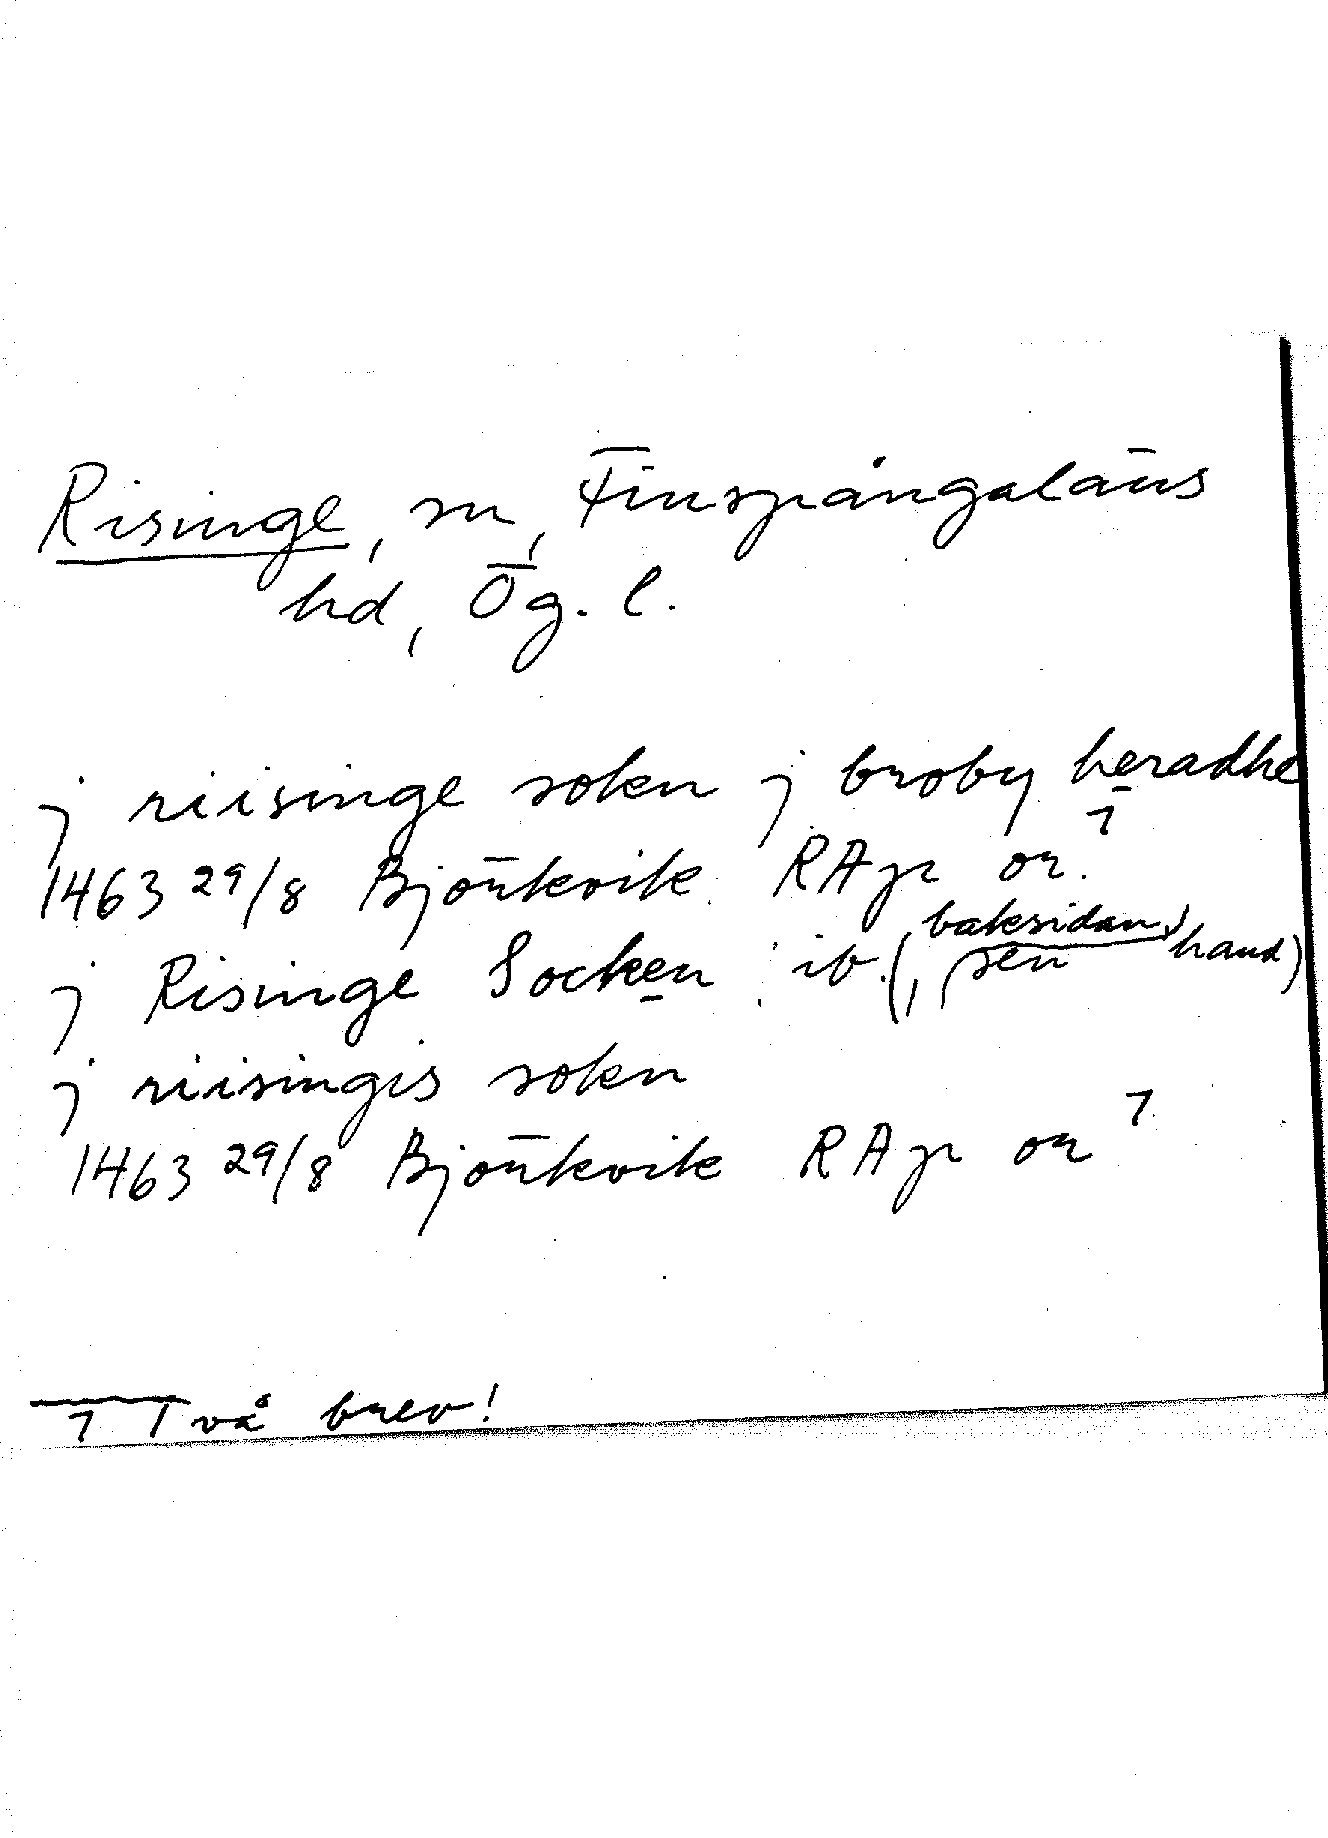 Risinge, sn, Finspångaläns
hd, Ög. l.
j riisinge sokn j broby heradhe
1463 29/8 Björkvik RAp or. 1
j Risinge Socken ib. (baksidan, sen hand)
j riisingis sokn
1463 29/8 Björkvik RAp or 1
1 Två brev!